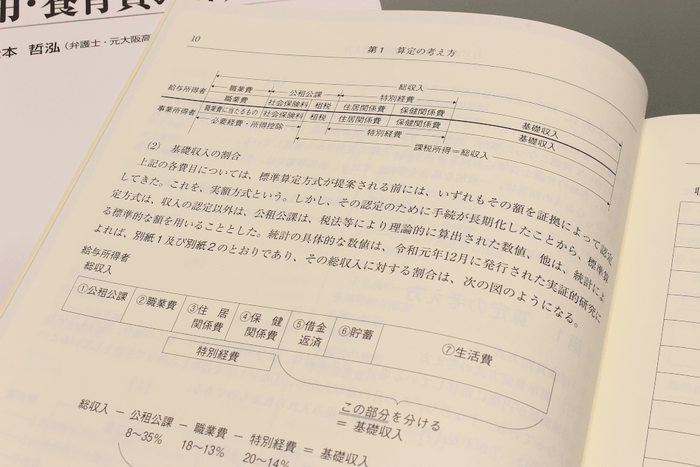 本 哲泓（弁護士・元大阪高
10
第1 算定の考え方
総収入
職業費 公租公課 特別経費
給与所得者 職業費 社会保険料 租税 住居関係費 保健関係費 基礎収入
事業所得者 職業費に当たるもの 社会保険料 租税 住居関係費 保健関係費 基礎収入
必要経費・所得控除 特別経費
課税所得＝総収入
(2) 基礎収入の割合
上記の各費目については、標準算定方式が提案される前には、いずれもその額を証拠によって認定
してきた。これを、実額方式という。しかし、その認定のために手続が長期化したことから、標準算
定方式は、収入の認定以外は、公租公課は、税法等により理論的に算出された数値、他は、統計によ
る標準的な額を用いることとした。統計の具体的な数値は、令和元年12月に発行された実証的研究に
よれば、別紙1及び別紙2のとおりであり、その総収入に対する割合は、次の図のようになる。
給与所得者
総収入
①公租公課 ②職業費 ③住居関係費 ④保健関係費 ⑤借金返済 ⑥貯蓄 ⑦生活費
特別経費
この部分を分ける
＝ 基礎収入
総収入 － 公租公課 － 職業費 － 特別経費 ＝ 基礎収入
8～35% 18～13% 20～14%